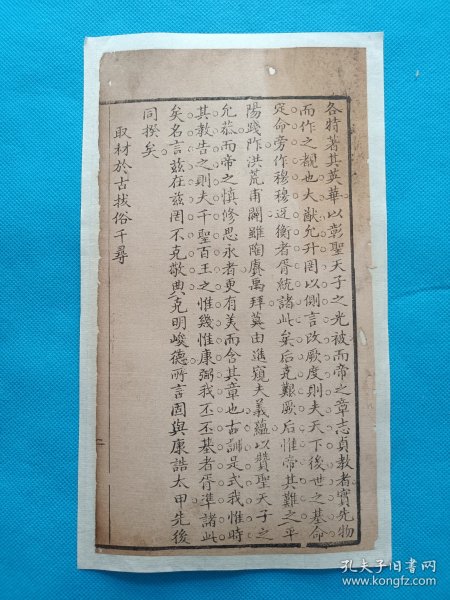 各特著其英華以彰聖天子之光被而帝之章志貞教者實先物
而作之覩也大猷允升罔以側言改厥度則夫天下後世之基命
定命旁作穆穆迓衡者胥統諸此矣后克艱厥后惟帝其難之平
陽踐阼洪荒甫闢雖陶賡禹拜莫由進窺夫義蘊以贊聖天子之
允恭而帝之慎修思永者更有美而含其章也古訓是式我惟時
其教告之則夫千聖百王之惟幾惟康弼我丕丕基者胥準諸此
矣名言茲在茲罔不克敬典克明峻德所言固與康誥太甲先後
同揆矣
取材於古拔俗千尋
孔夫子旧书网
www.kongfz.com